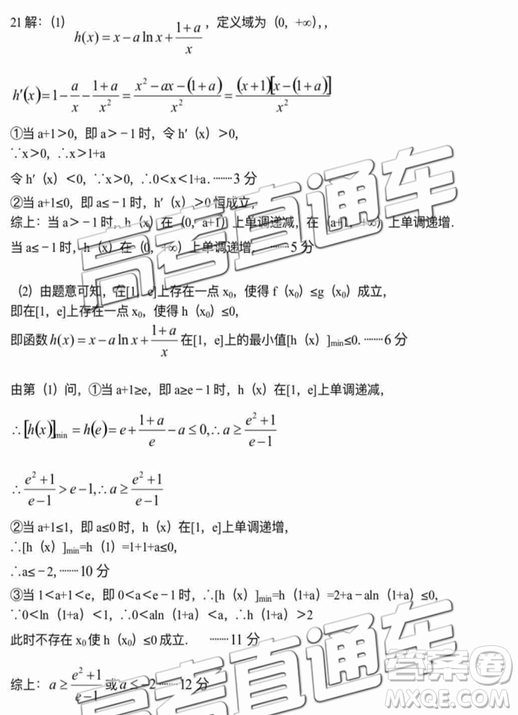 21解：（1） h(x)=x−a ln x+\frac{1+a}{x}，定义域为（0，+∞），，
h′(x)=1−\frac{a}{x}−\frac{1+a}{x^2}=\frac{x^2−ax−(1+a)}{x^2}=\frac{(x+1)[x−(1+a)]}{x^2}
①当 a+1＞0，即 a＞﹣1 时，令 h′（x）＞0，
∵x＞0，∴x＞1+a
令 h′（x）＜0，∵x＞0，∴0＜x＜1+a.········3 分
②当 a+1≤0，即 a≤﹣1 时，h′（x）＞0 恒成立，
综上：当 a＞﹣1 时，h（x）在（0，a+1）上单调递减，在（a+1，+∞）上单调递增.
当 a≤﹣1 时，h（x）在（0，+∞）上单调递增，········5 分
（2）由题意可知，在[1，e]上存在一点 x₀，使得 f（x₀）≤g（x₀）成立，
即在[1，e]上存在一点 x₀，使得 h（x₀）≤0，
即函数 h(x)=x−a ln x+\frac{1+a}{x} 在[1，e]上的最小值[h（x）]min≤0.········6 分
由第（1）问，①当 a+1≥e，即 a≥e﹣1 时，h（x）在[1，e]上单调递减，
∴[h(x)]min=h(e)=e+\frac{1+a}{e}−a≤0,∴a≥\frac{e^2+1}{e−1}
∴\frac{e^2+1}{e−1}>e−1,∴a≥\frac{e^2+1}{e−1}
②当 a+1≤1，即 a≤0 时，h（x）在[1，e]上单调递增，
∴[h（x）]min=h（1）=1+1+a≤0，
∴a≤﹣2，········10 分
③当 1＜a+1＜e，即 0＜a＜e﹣1 时，∴[h（x）]min=h（1+a）=2+a﹣aln（1+a）≤0，
∵0＜ln（1+a）＜1，∴0＜aln（1+a）＜a，∴h（1+a）＞2
此时不存在 x₀ 使 h（x₀）≤0 成立. ········11 分
综上：a≥\frac{e^2+1}{e−1} 或 a≤﹣2········12 分
高考直通车
高考直通车
答案圈